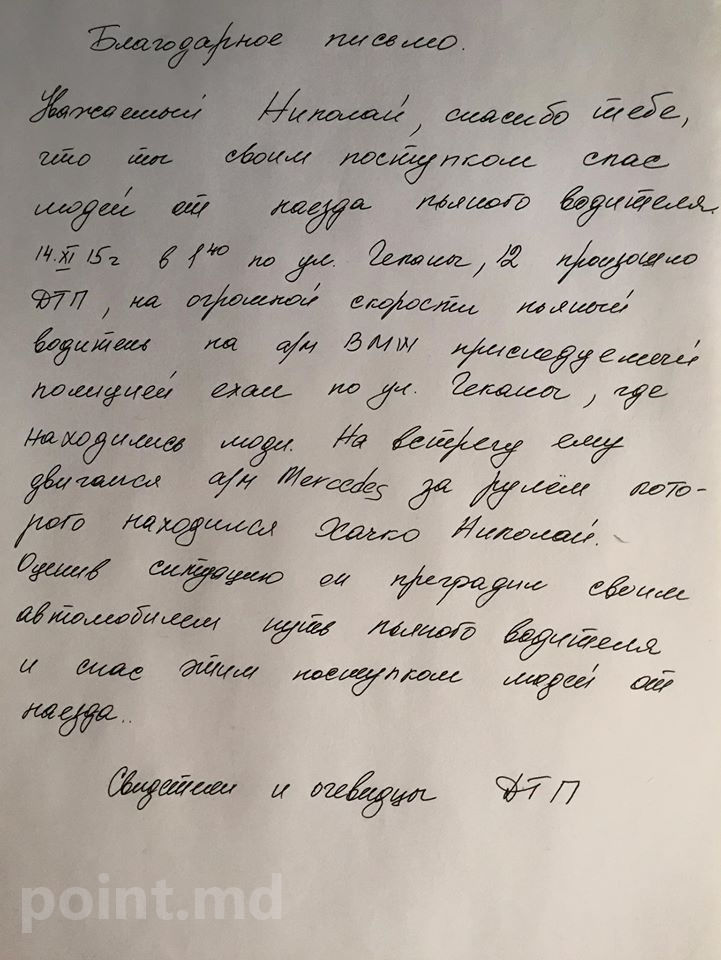 Благодарное письмо.
Уважаемый Николай, спасибо тебе,
что ты своим поступком спас
людей от наезда пьяного водителя.
14.XI 15г в 1 40 по ул. Чеканы, 12 произошло
ДТП, на огромной скорости пьяный
водитель на а/м BMW приследуемый
полицией ехал по ул. Чеканы, где
находились люди. На встречу ему
двигался а/м Mercedes за рулём кото-
рого находился Хачко Николай.
Оценив ситуацию он преградил своим
автомобилем путь пьяного водителя
и спас этим поступком людей от
наезда..
Свидетели и очевидцы ДТП
point.md